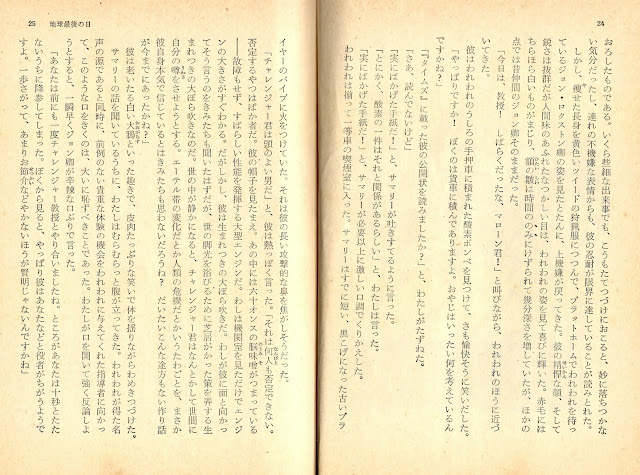 24
おろしたものである。いくら些細な出来事でも、こうもたてつづけにおこると、妙に落ちつかな
い気分だったし、連れの不機嫌な表情からも、彼の忍耐が限界に達していることが読みとれた。
しかし、痩せた長身を黄色いツイードの狩猟服につつんで、プラットホームでわれわれを待っ
ているジョン・ロクストン卿の姿を見たとたんに、上機嫌が戻ってきた。彼の精悍な顔、そして
鋭さは抜群だが人間味のあふれたなつかしい目は、われわれの姿を見て喜びに輝いた。赤毛には
ちらほら白いものがまじり、額の皺は時間ののみにけずられて幾分深さを増していたが、ほかの
点では昔仲間のジョン卿そのままだった。
「今日は、教授！　しばらくだったな、マローン君！」と叫びながら、われわれのほうに近づ
いてきた。
彼はわれわれのうしろの手押車に積まれた酸素ボンベを見つけて、さも愉快そうに笑いだした。
「やっぱりですか！　ぼくのは貨車に積んでありますよ。おやじはいったい何を考えているん
ですかね？」
「『タイムズ』に載った彼の公開状を読みましたか？」と、わたしがたずねた。
「さあ、読んでないけど」
「実にばかげた手紙だ！」と、サマリーが吐きすてるように言った。
「とにかく、酸素の一件はそれと関係があるらしい」と、わたしは言った。
「実にばかげた手紙だ！」と、サマリーが必要以上に激しい口調でくりかえした。
われわれは揃って一等車の喫煙室に入った。サマリーはすでに短い、黒こげになった古いブラ
25　地球最後の日
イヤーのパイプに火をつけていた。それは彼の長い攻撃的な鼻を焦がしそうだった。
「チャレンジャー君は頭のよい男だ」と、彼は熱っぽく言った。「それは何人も否定できない。
否定するやつはばか者だ。彼の帽子を見たまえ。あの中には六十オンスの脳味噌がつまっている
――故障もせず、すばらしい性能を発揮する大型エンジンだ。わしは機関室を見ただけでエンジ
ンの大きさがすぐわかる。だがしかし、彼は生まれつきの大ぼら吹きだ。わしが彼に面と向かっ
てそう言うのをきみたちも聞いたはずだが、世の脚光を浴びるために芝居がかった策を弄する生
まれつきの大ぼら吹きなのだ。世の中が静かになると、チャレンジャー君はなんとかして世間に
自分の噂をさせようとする。エーテル帯の変化だとか人類の危機だとかいうたわごとを、まさか
彼自身本気で信じているとはきみたちも思わないだろうね？　だいたいこんな途方もない作り話
が今までにあったかね？」
彼は老いたる白い大鴉といった趣きで、皮肉たっぷりな笑いで体を揺りながらわめきつづけた。
サマリーの話を聞いているうちに、わたしはむらむらと腹が立ってきた。われわれが得た名
声の源であると同時に、前例のない貴重な体験の機会をわれわれに与えてくれた指導者に向かっ
て、このような口をきくのは、大いに恥ずべきことであった。わたしが口を開いて強く反論しよ
うとすると、一瞬早くジョン卿が辛辣な口ぶりで言った。
「あなたは前にも一度チャレンジャー教授とやり合いましたね。ところがあなたは十秒とたた
ないうちに降参してしまった。ぼくから見ると、やっぱり彼はあなたなどと役者がちがうようで
すよ。一歩さがって、あまりお節介などやかないほうが賢明じゃないんですかね」